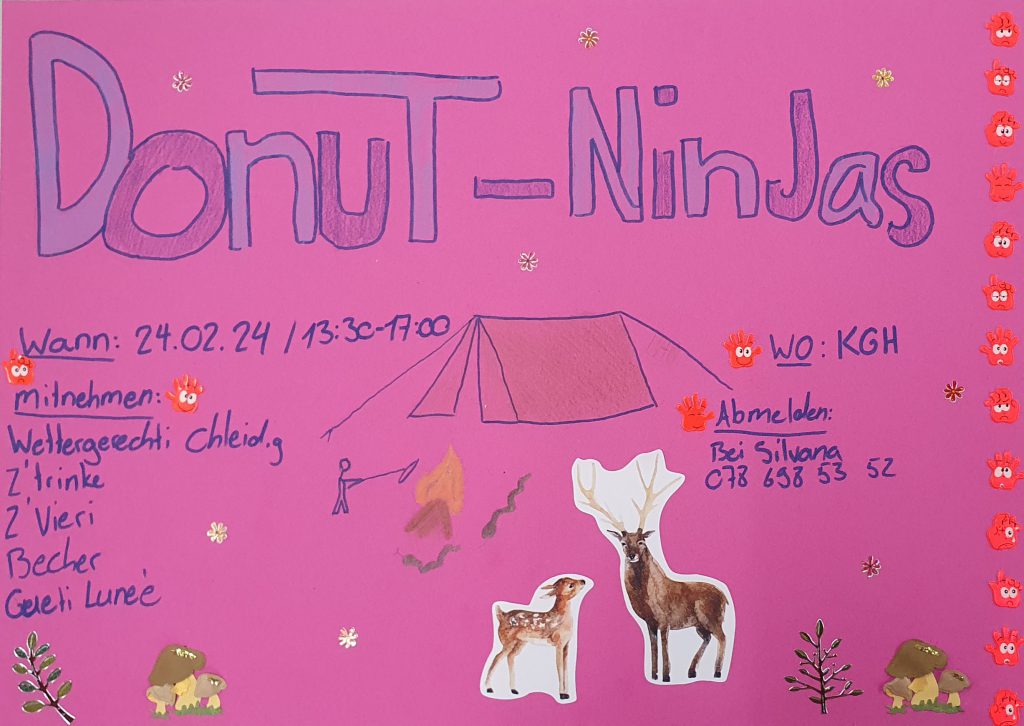 Donut-Ninjas
Wann: 24.02.24 / 13:30-17:00
mitnehmen:
Wettergerechti Chleidig
Z'trinke
Z'Vieri
Becher
Gueti Luneé
WO: KGH
Abmelden:
Bei Silvana
078 698 53 52